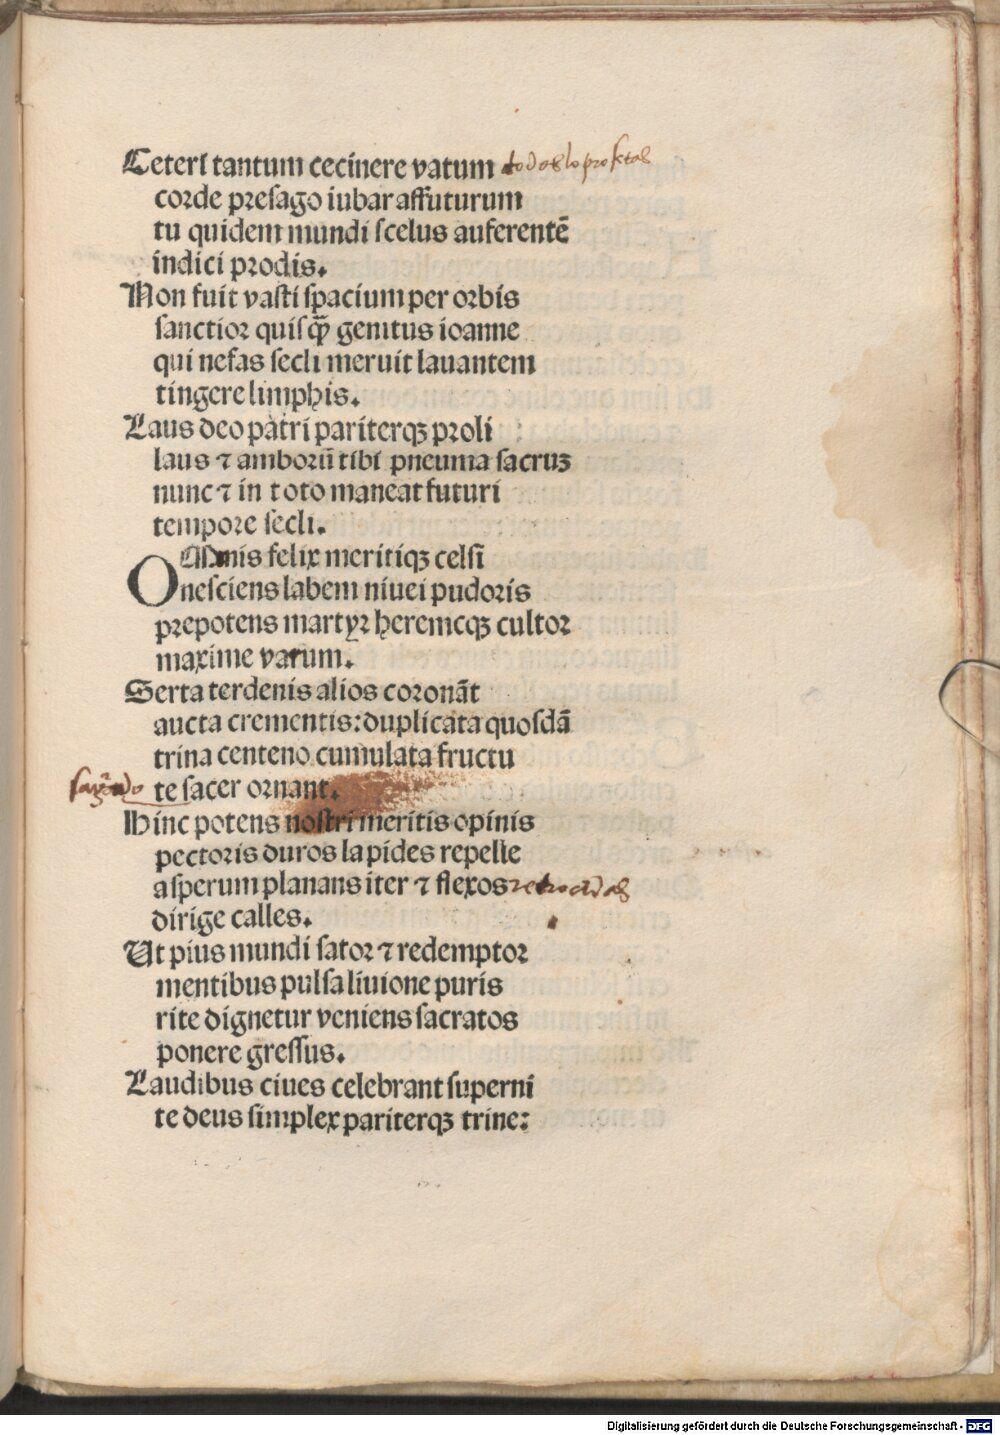 Ceteri tantum cecinere vatum todos lo profetas
corde presago iubar affuturum
tu quidem mundi scelus auferentē
indici prodis.
Non fuit vasti spacium per orbis
sanctior quisqȝ̄ genitus ioanne
qui nefas secli meruit lauantem
tingere limphis.
Laus deo patri pariterqȝ proli
laus ⁊ amborū tibi pneuma sacruȝ
nunc ⁊ in toto maneat futuri
tempore secli.
O Nimis felix meritiqȝ celsi
nesciens labem niuei pudoris
prepotens martyr heremcqȝ cultor
maxime vatum.
Serta terdenis alios coronāt
aucta crementis: duplicata quosdā
trina centeno cumulata fructu
te sacer ornant.
Hinc potens nostri meritis opinis
pectoris duros lapides repelle
asperum planans iter ⁊ flexos
dirige calles.
Ut pius mundi sator ⁊ redemptor
mentibus pulsa liuione puris
rite dignetur veniens sacratos
ponere gressus.
Laudibus ciues celebrant superni
te deus simplex pariterqȝ trine:
Digitalisierung gefördert durch die Deutsche Forschungsgemeinschaft - DFG